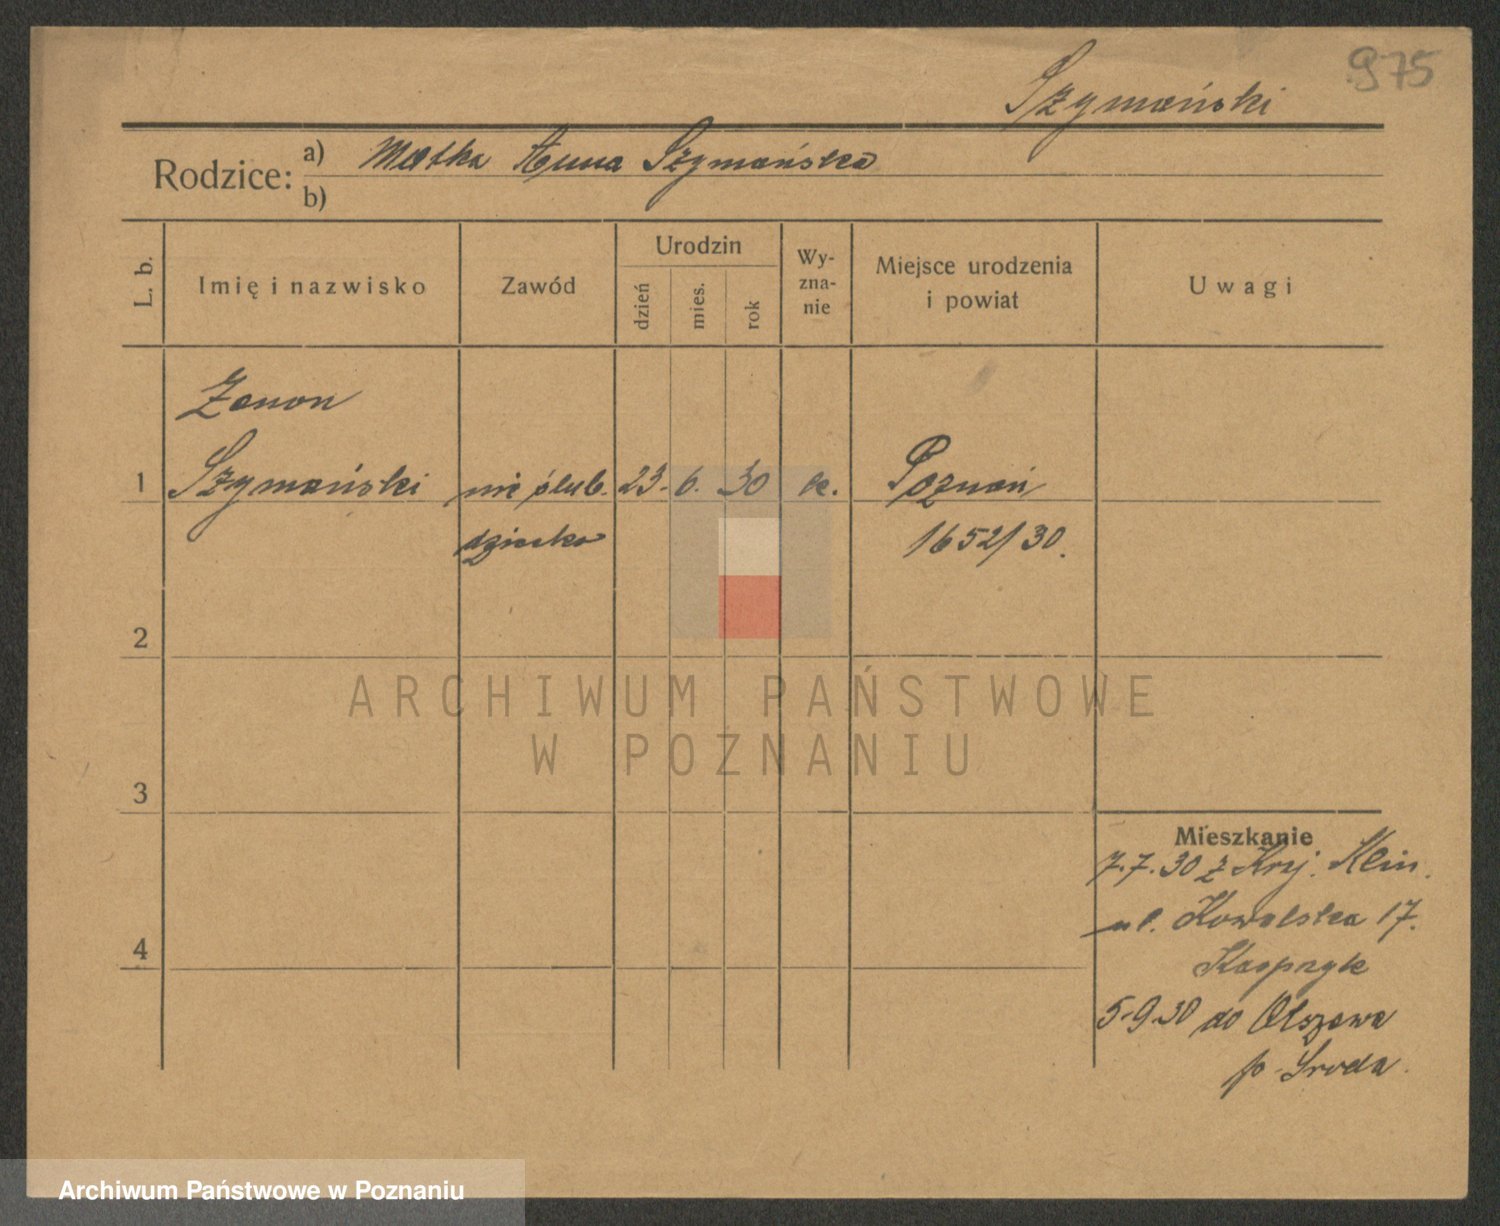 975
Szymański
Rodzice: a) Matka Anna Szymańska
b)
L. b.
Imię i nazwisko
Zawód
Urodzin
dzień
mies.
rok
Wy-
zna-
nie
Miejsce urodzenia
i powiat
Uwagi
Zenon
1 Szymański nie ślub. 23. 6. 30 k. Poznań
dziecko 1652/30.
2
ARCHIWUM PAŃSTWOWE
W POZNANIU
3
4
Mieszkanie
7.7.30 z Krj. Klin.
ul. Kowalska 17.
Kasprzyk
5.9.30 do Olszewa
p. Sroda.
Archiwum Państwowe w Poznaniu